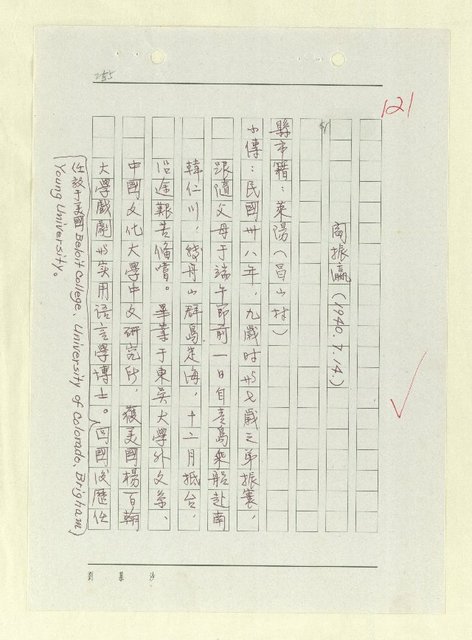 121
周振瀛(1940.7.14.)
縣市籍：萊陽(昌山村)
小傳：民國卅八年，九歲时与七歲之弟振襄，
跟隨父母于端午節前一日自青島乘船赴南
韓仁川，繞舟山群島定海，十二月抵台，
沿途艱苦備嘗。畢業于東吳大學外文系、
中國文化大學中文研究所，獲美國楊百翰
大学戲劇与实用语言学博士。回國後歷任
(任教于美國Beloit College, University of Colorado, Brigham
Young University。